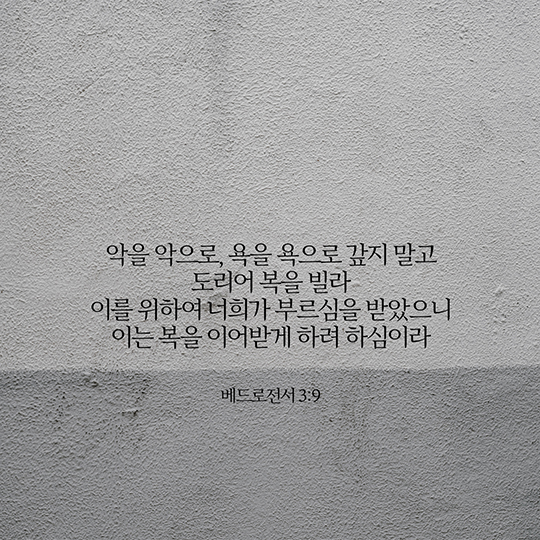 악을 악으로, 욕을 욕으로 갚지 말고
도리어 복을 빌라
이를 위하여 너희가 부르심을 받았으니
이는 복을 이어받게 하려 하심이라
베드로전서 3:9